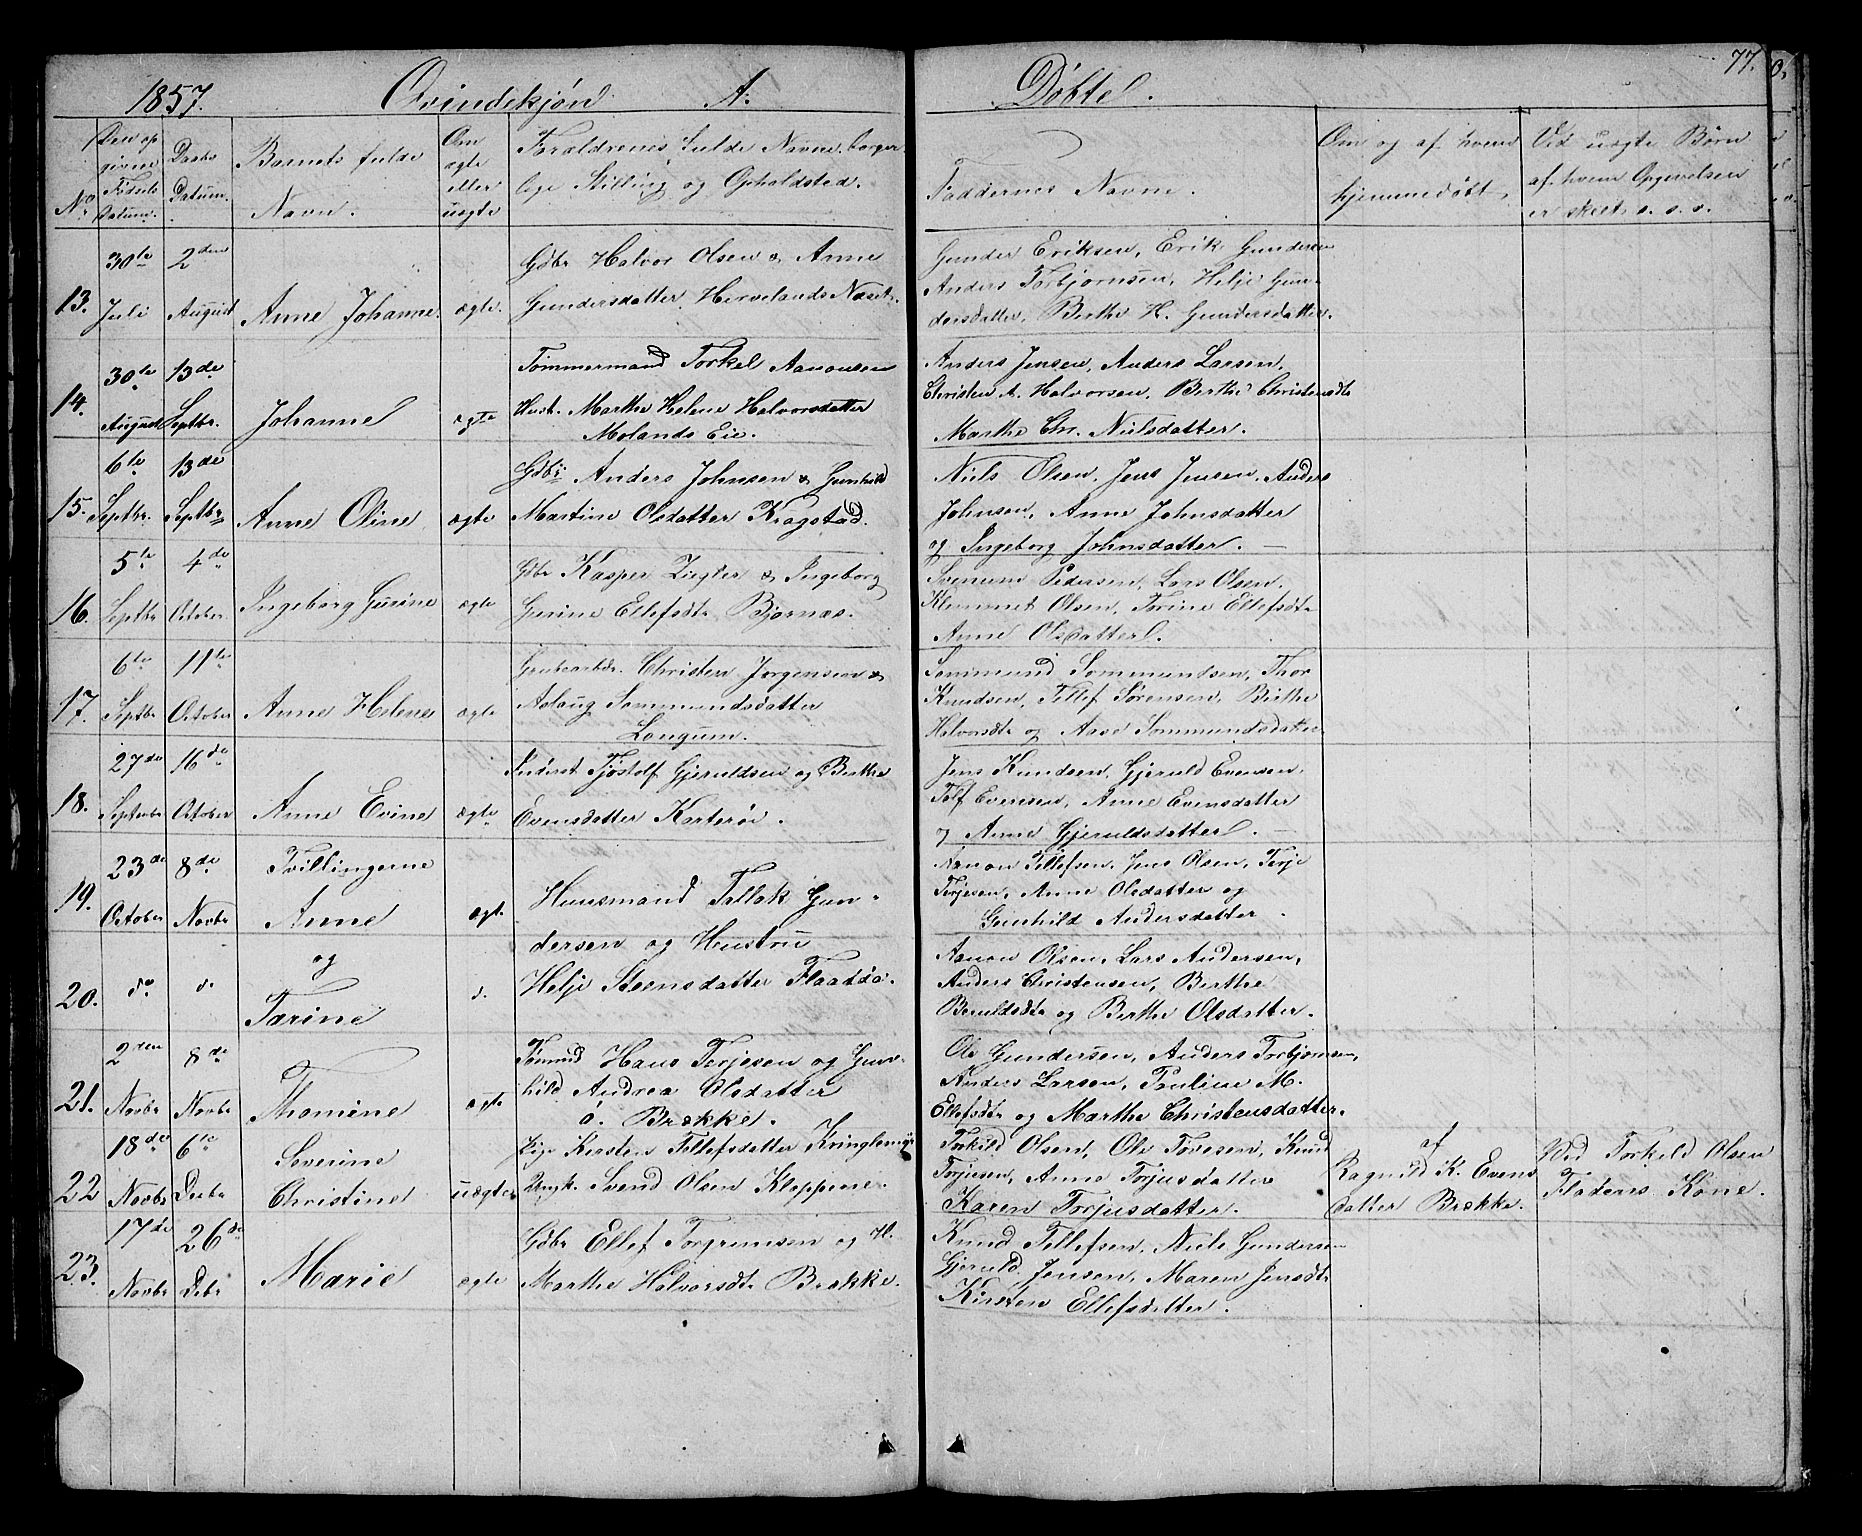 1857. Qvindekjøn A. Døbte. 77.
No. Den op givne Fødsels Datum. Daabs Datum. Barnets fulde Navn. Om ægte eller uægte Forældrenes fulde Navne, borgerlige Stilling og Opholdsted. Faddernes Navne. Om og af hvem hjemmedøbt, Ved uægte Børn af hvem Opgivelsen er skeet, o. s. v.
13. 30te Juli 2den August Anne Johanne. ægte.
Gdbr Halvor Olsen & Anne
Gundersdatter Hervelands Næset.
Gunder Eriksen, Erik Gundersen
Anders Torbjørnsen, Helje Gun-
dersdatter, Berthe H. Gundersdatter.
14. 30te August 13de Septbr. Johanne ægte
Tømmermand Torkel Aanonsen
Hust. Marthe Helene Halvorsdatter
Molands Eie.
Anders Jensen, Anders Larsen,
Christen A. Halvorsen, Berthe Christensdt
Marthe Chr. Nielsdatter.
15. 6te Septbr. 13de Septbr Anne Oline ægte
Gdbr Anders Johnsen & Gunhild
Martine Olsdatter Kragstad.
Niels Olsen, Jens Jensen, Anders
Johnsen, Anne Johnsdatter
og Ingeborg Johnsdatter.
16. 5te Septbr 4de October Ingeborg Gurine ægte
Gdbr Kasper Ziegler & Ingeborg
Gurine Ellefsdt. Bjørnæs.
Svenum Pedersen, Lars Olsen,
Klemmet Olsen, Torine Ellefsdt
Anne Olsdatter.
17. 6te Septbr 11te October Anne Helene ægte
Grubearbdr. Christen Jørgensen &
Aslaug Sommundsdatter
Langum.
Sommund Sommundsen, Thor
Knudsen, Tellef Sørensen, Birthe
Halvorsdt og Aase Sommundsdatter
18. 27de Septembr 16de October Anne Evine ægte
Inderst Tjøstolf Gjeruldsen og Berthe
Evensdatter Karterøi.
Jens Knudsen, Gjeruld Evensen,
Tolf Evensen, Anne Evensdatter
og Anne Gjeruldsdatter.
19. 23de October 8de Novbr Tvillingerne Anne ægt.
Huusmand Tellak Gun-
dersen og Hustru
Helje Steensdatter Flaaddø.
Aanon Tellefsen, Jens Olsen, Terje
Terjesen, Anne Olsdatter og
Gunhild Andersdatter.
20. do d. og Tarine d.
Aanon Olsen, Lars Andersen,
Anders Christensen, Berthe
Beruldsdt og Berthe Olsdatter.
21. 2den Novbr 8de Novbr Thomine ægte
Tømmd Hans Terjesen og Gun-
hild Andrea Olsdatter
å. Brække.
Ole Gundersen, Anders Torbjørnsen,
Anders Larsen, Pauline M.
Ellefsdt og Marthe Christensdatter.
22 18de Novbr 6te Decbr Severine Christine uægte
Pige Kirsten Tellefsdatter Kringlemyr
Ungk. Svend Olsen Kloppene.
Torkild Olsen, Ole Tovesen, Knud
Torjusen, Anne Torjusdatter
Karen Torjusdatter.
af Ragnild K. Evens datter Brække.
Ved Torkild Olsen Fladens Kone.
23. 17de Novbr 26de Debr Marie ægte
Gdbr Ellef Torgrimsen og H.
Marthe Halvorsdt. Brække.
Knud Tellefsen, Niels Gundersen
Gjeruld Jensen, Maren Jensdt.
Kirsten Ellefsdatter.